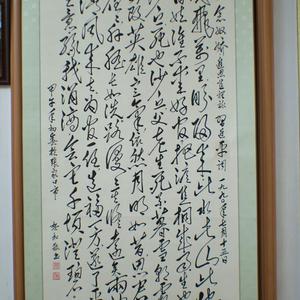 念奴娇 追思焦裕禄 习近平词 一九九〇年七月十五日
飞万里盼归来此水此山此
姓谁不爱好官把泪焦桐成雨生也
丘死也沙丘父老生死系暮雪朝霜
改英雄意气依然月明如昔思君
肝胆长如洗路漫漫其修远矣两袖
清风来去为官一任造福一方遂了平
意绿我涓滴会它千顷澄碧
甲午年初春